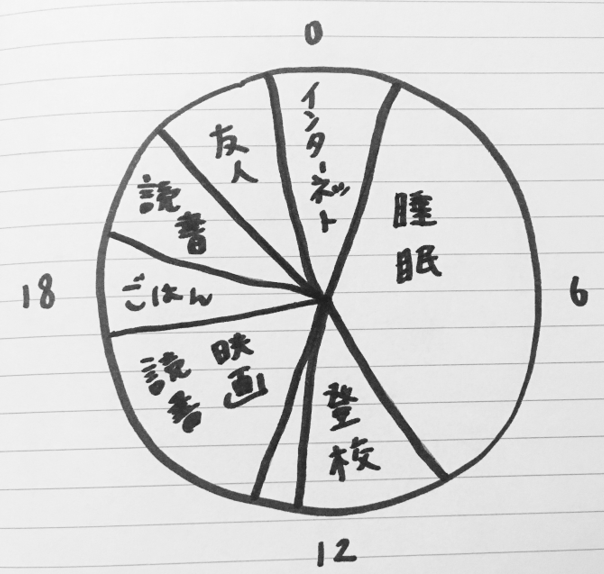 0
インターネット
睡眠
6
登校
12
映画
読書
ごはん
18
読書
友人